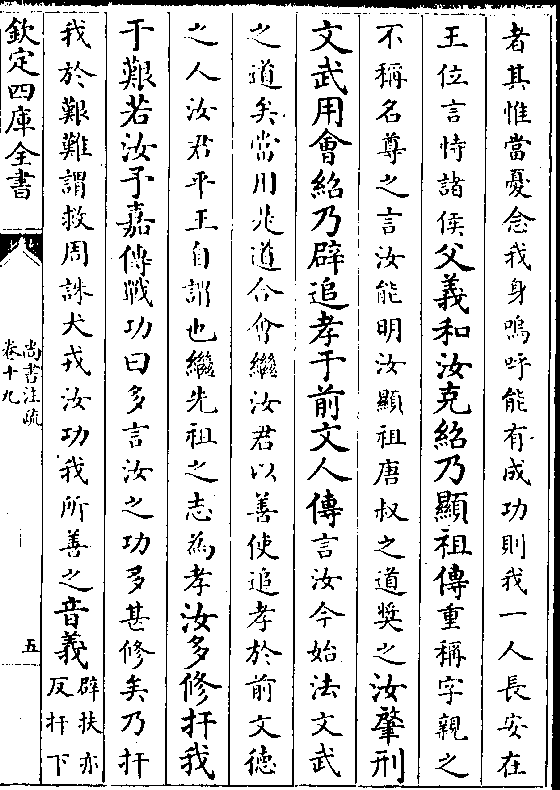 者其惟當憂念我身嗚呼能有成功則我一人長安在
王位言恃諸侯父義和汝克紹乃顯祖傳重稱字親之
不稱名尊之言汝能明汝顯祖唐叔之道奬之汝肇刑
文武用會紹乃辟追孝于前文人傳言汝今始法文武
之道矣當用是道合會繼汝君以善使追孝於前文德
之人汝君平王自謂也繼先祖之志為孝汝多修扞我
于艱若汝予嘉傳戰功曰多言汝之功多甚修矣乃扞
我於艱難謂救周誅犬戎汝功我所善之音義辟扶亦
反扞下
欽定四庫全書
尚書注疏
卷十九
五